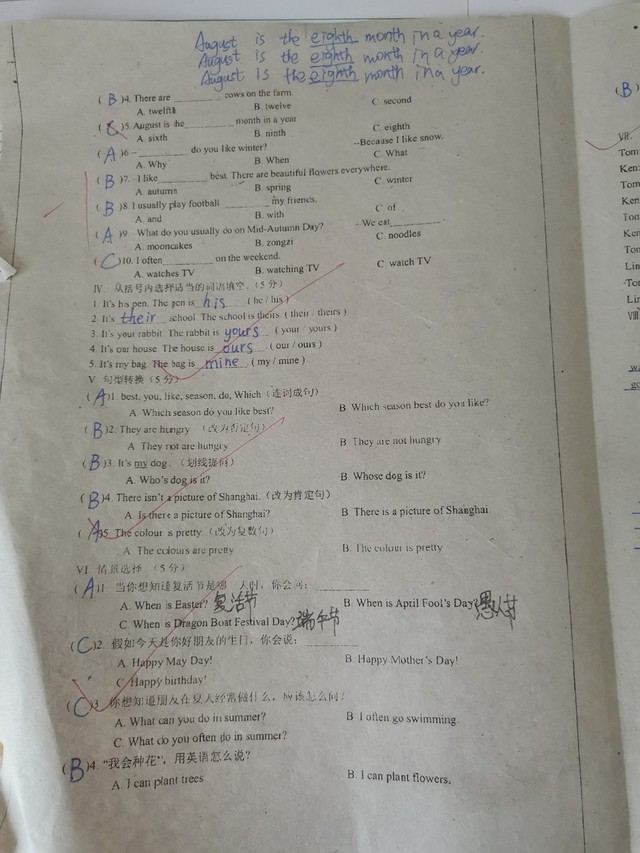 August is the eighth month in a year.
August is the eighth month in a year.
August is the eighth month in a year.
(B)4. There are ________ cows on the farm.
A. twelfth B. twelve C second
( )5. August is the ________ month in a year
A. sixth B. ninth C. eighth
(A)6 -- ________ do you like winter? --Because I like snow.
A. Why B. When C. What
(B)7. I like ________ best. There are beautiful flowers everywhere.
A. autumn B. spring C. winter
(B)8. I usually play football ________ my friends.
A. and B. with C. of
(A)9 What do you usually do on Mid-Autumn Day? - We eat ________
A. mooncakes B. zongzi C. noodles
(C)10. I often ________ on the weekend.
A. watches TV B. watching TV C watch TV
IV. 从括号内选择适当的词语填空。(5 分)
1 It's his pen. The pen is his . ( he / his )
2 It's their school. The school is theirs. ( their / theirs )
3. It's your rabbit. The rabbit is yours . ( your / yours )
4. It's our house. The house is ours . ( our / ours )
5. It's my bag. The bag is mine . ( my / mine )
V 句型转换(5 分)
(A)1. best, you, like, season, do, Which (连词成句)
A. Which season do you like best? B Which season best do you like?
(B)2. They are hungry (改为否定句)
A. They not are hungry B. They are not hungry
(B)3. It's my dog. (划线提问)
A. Who's dog is it? B. Whose dog is it?
(B)4. There isn't a picture of Shanghai. (改为肯定句)
A. Is there a picture of Shanghai? B There is a picture of Shanghai
(A)5. The colour is pretty. (改为复数句)
A. The colours are pretty B. The colour is pretty
VI 情景选择 (5 分)
(A)1 当你想知道复活节是哪 人时, 你会问: ________
A. When is Easter? 复活节 B. When is April Fool's Day? 愚人节
C. When is Dragon Boat Festival Day? 端午节
(C)2. 假如今天是你好朋友的生日, 你会说: ________
A. Happy May Day! B. Happy Mother's Day!
C. Happy birthday!
(C)3 你想知道朋友在夏人经常做什么, 应该怎么问?
A. What can you do in summer? B I often go swimming
C. What do you often do in summer?
(B)4. "我会种花", 用英语怎么说?
A. I can plant trees B. I can plant flowers.
(B)
VII.
Tom:
Ken:
Tom
Ken
Tom
Ken
Tom
Lin
Tor
Lin
VIII